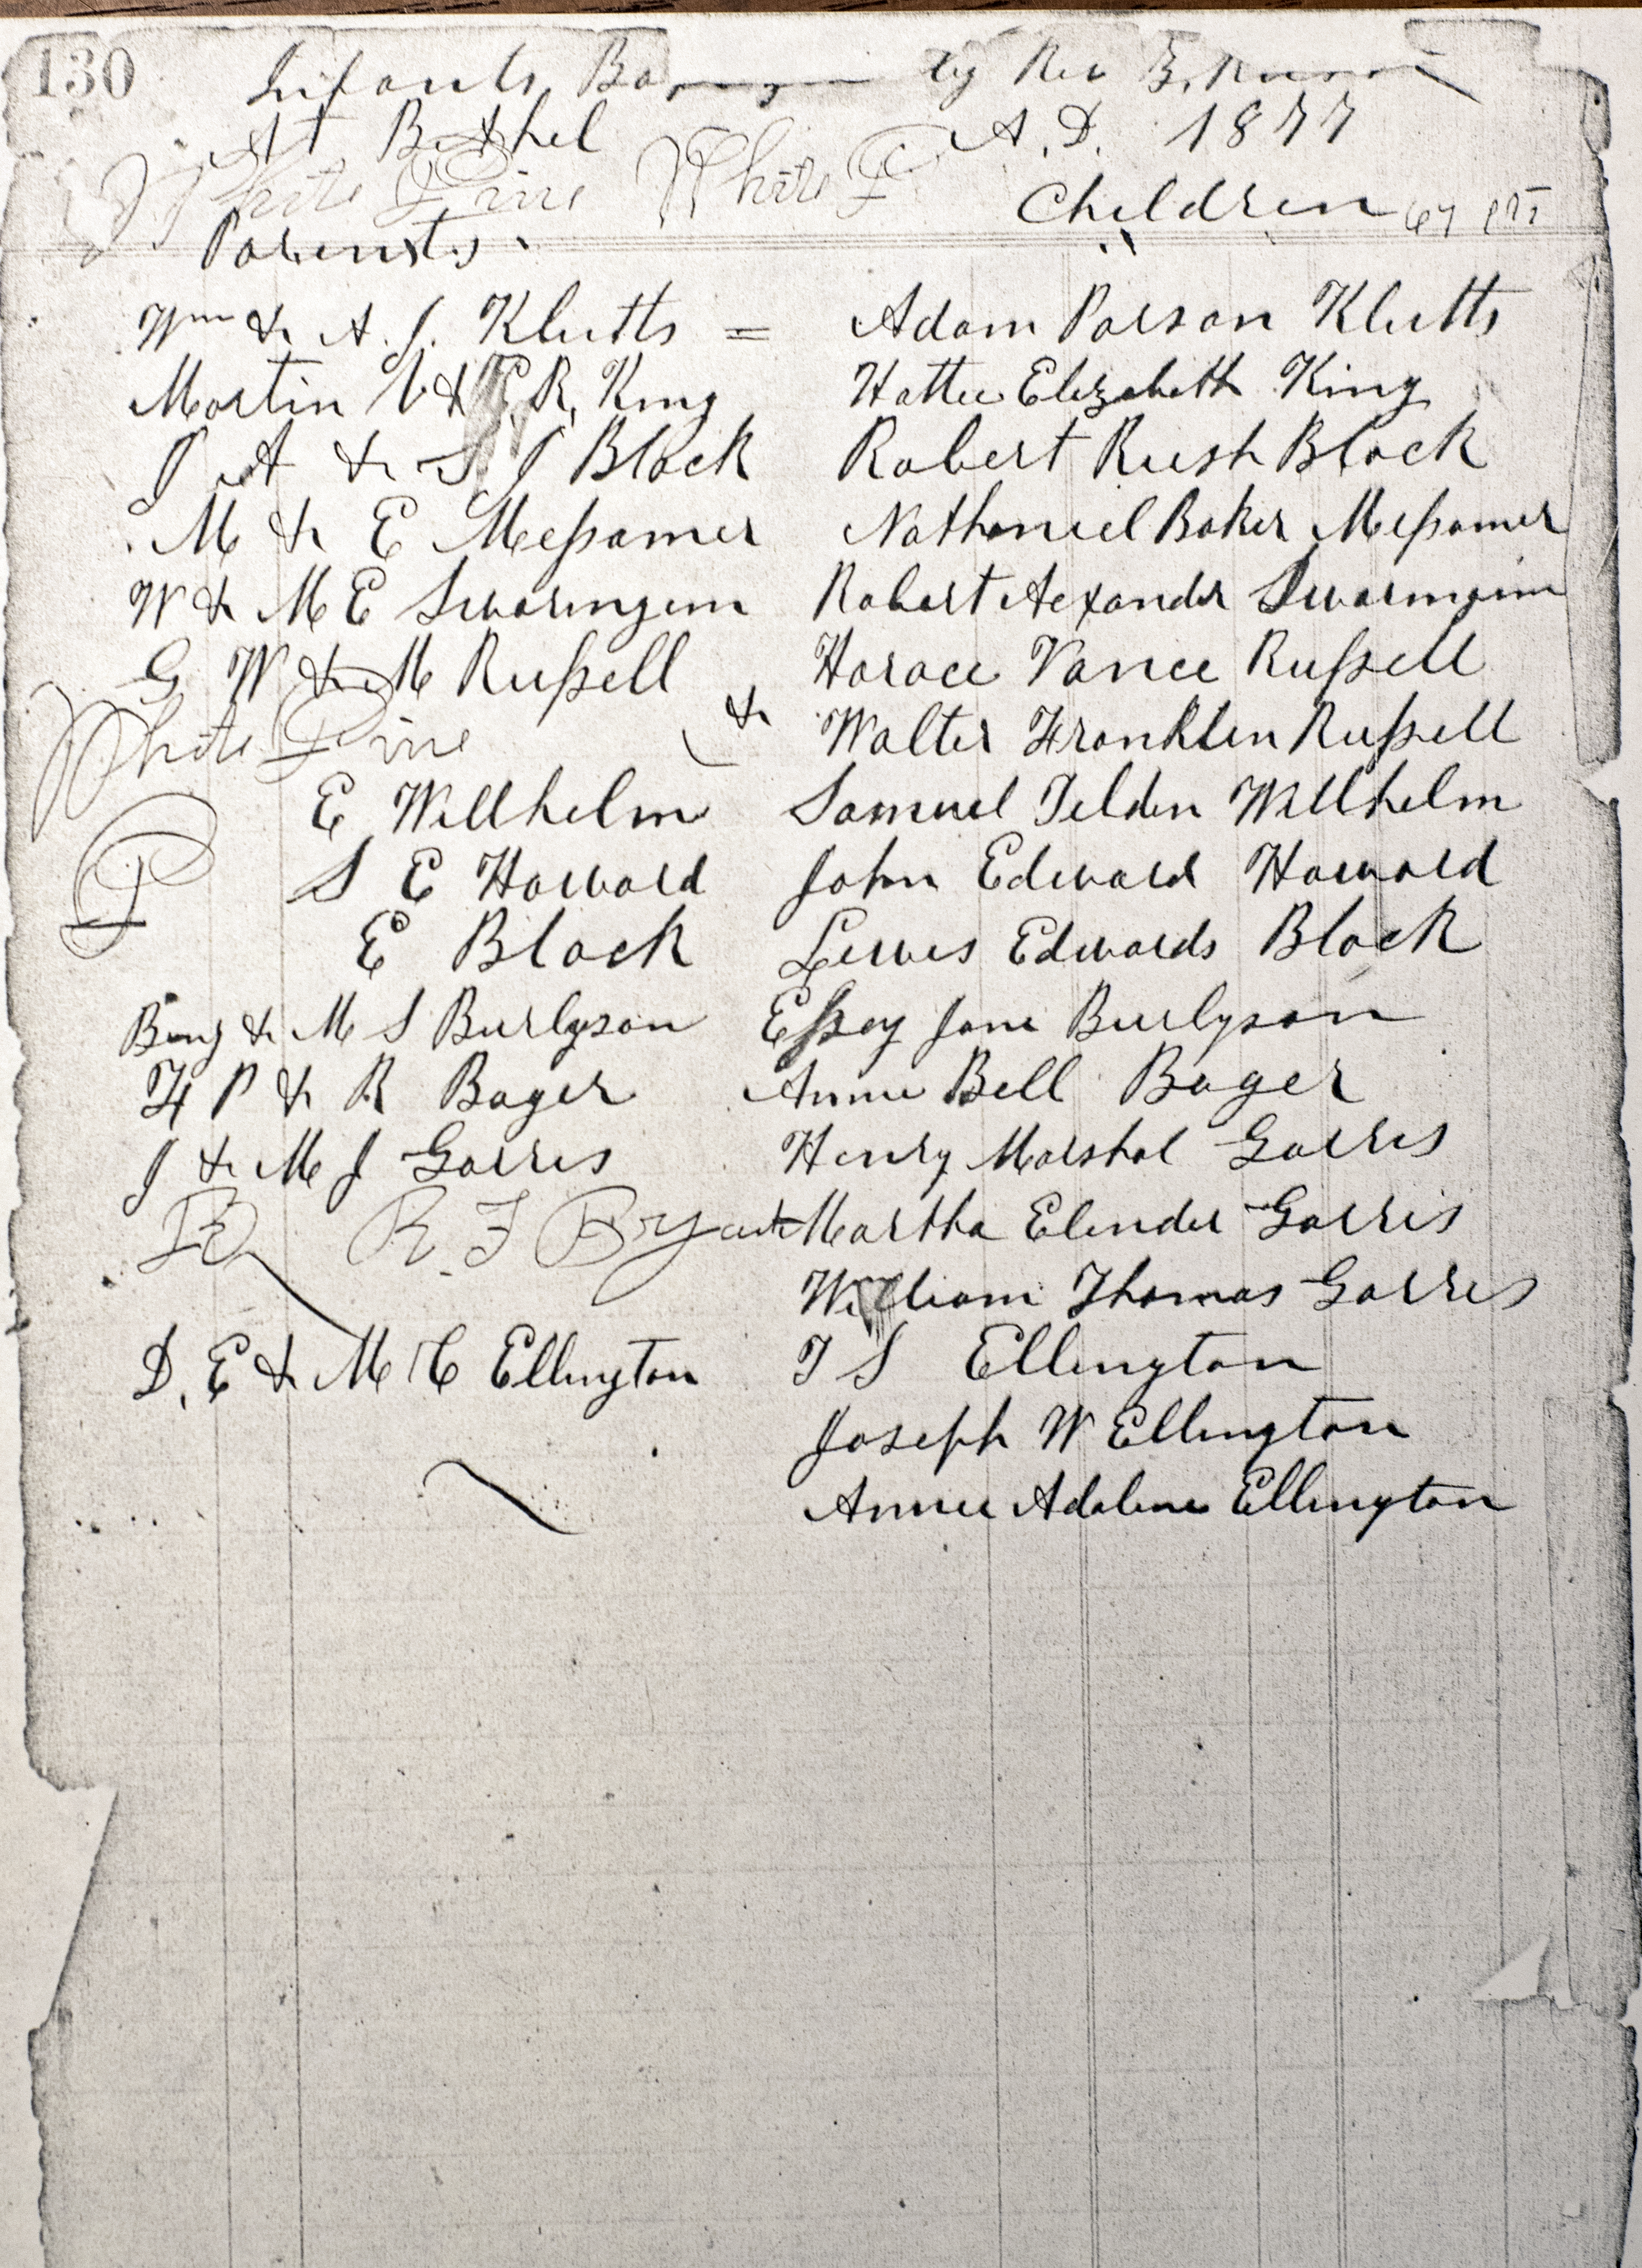 130
Infants by Rev
At Bethel A. D. 1877
White Pine White P
Children
Parents
Wm & A. J. Klutts = Adam Parson Klutts
Martin V & E. R. King Hattie Elizabeth King
J A & S J Black Robert Rush Black
M & E Messamer Nathaniel Baker Messamer
W & M E Swaringim Robert Aexander Swaringim
G W & M Russell Horace Vance Russell
White Pine & Walter Franklin Russell
E Willhelm Samuel Tilden Willhelm
P
S E Howard John Edward Howard
E Black Lewis Edwards Black
Benj & M S Burlyson Essey Jane Burlyson
H P & R Bager Annie Bell Bager
J & M J Garris Henry Marshal Garris
R. F Bryant Martha Elinder Garris
William Thomas Garris
D. E & M C Ellington T S Ellington
Joseph W Ellington
Annie Adaline Ellington